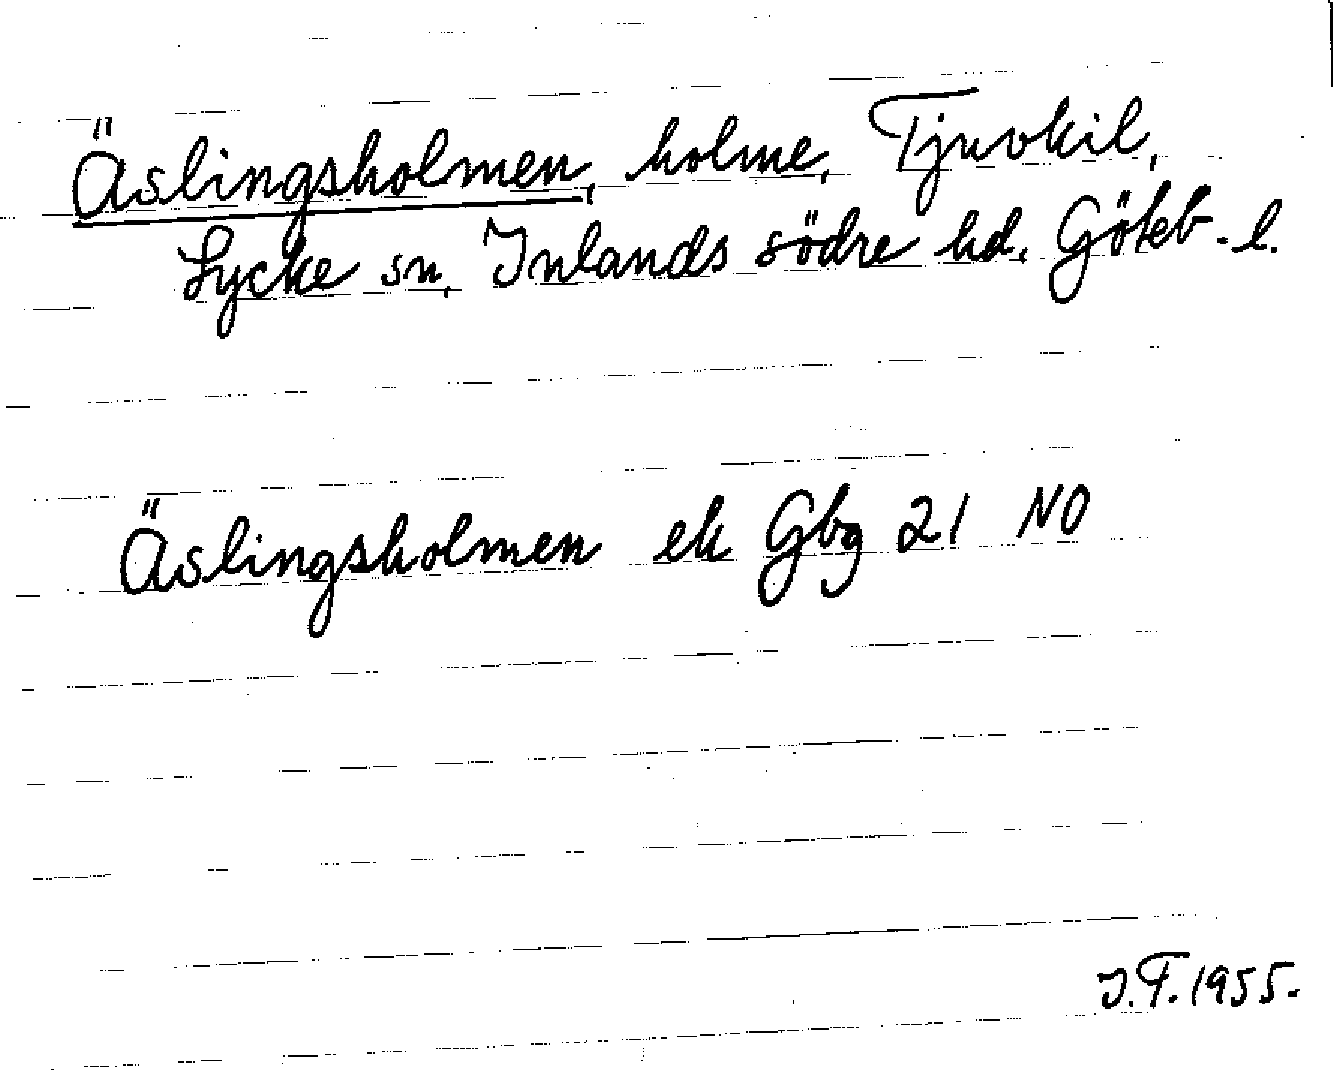 Äslingsholmen, holme, Tjuvkil,
Lycke sn, Inlands södre hd, Göteb-l.
Äslingsholmen ek Gbg 21 NO
J.F. 1955.